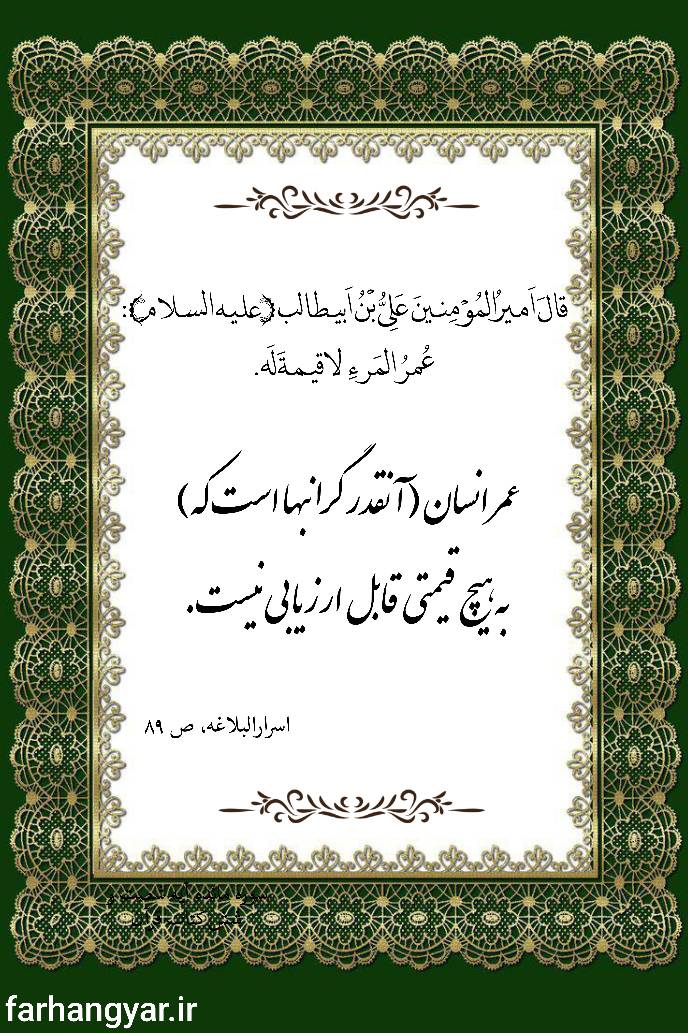 قالَ اَمیرُالمُؤمِنینَ عَلِیُّ بْنُ اَبیطالب(علیه السلام):
عُمرُ المَرءِ لا قیمةَ لَه.
عمر انسان (آنقدر گرانبها است که)
به هیچ قیمتی قابل ارزیابی نیست.
اسرارالبلاغه، ص ۸۹
farhangyar.ir